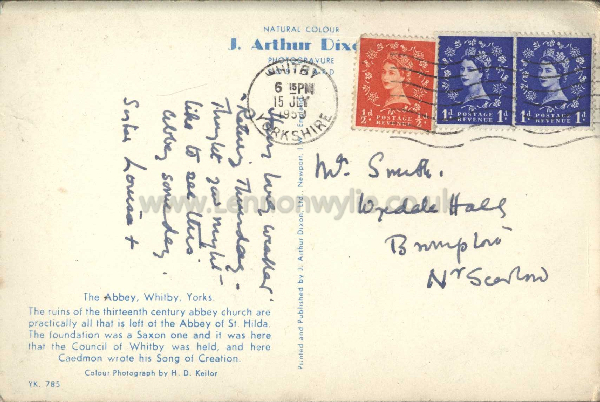 NATURAL COLOUR
J. Arthur Dixon
PHOTOGRAVURE
WHITBY
6 15PM
15 JLY
1958
YORKSHIRE
½d POSTAGE REVENUE ½d
1d POSTAGE REVENUE 1d
1d POSTAGE REVENUE 1d
Having lovely weather.
Returning Thursday -
Thought you might
like to see this
abbey someday.
Sister Louisa +
Mr. Smith.
Wydale Hall
Brompton
Nr Scarboro
Printed and Published by J. Arthur Dixon Ltd., Newport, I.
www.Lennonwylie.co.uk
The Abbey, Whitby, Yorks.
The ruins of the thirteenth century abbey church are
practically all that is left of the Abbey of St. Hilda.
The foundation was a Saxon one and it was here
that the Council of Whitby was held, and here
Caedmon wrote his Song of Creation.
Colour Photograph by H. D. Keilor
YK. 785